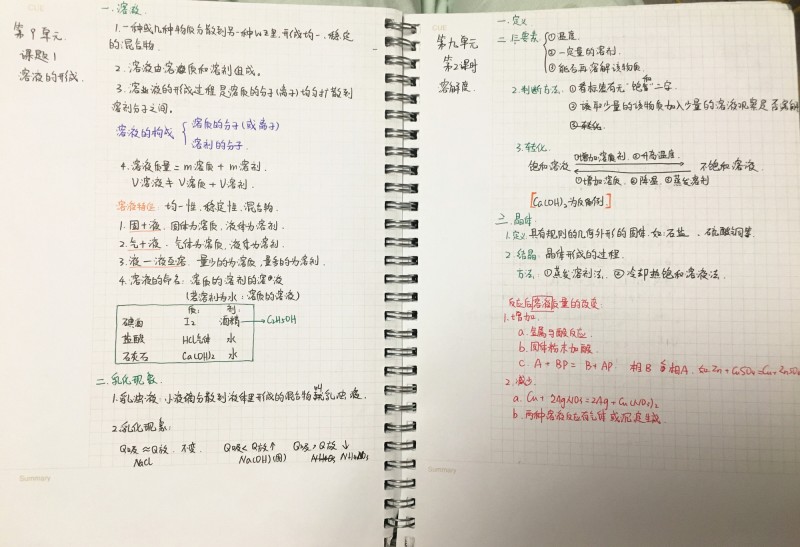 第9单元
课题1
溶液的形成
一.溶液.
1.一种或几种物质分散到另一种物质里,形成均一、稳定
的混合物.
2.溶液由溶质和溶剂组成。
3.溶液的形成过程是溶质的分子(离子)均匀扩散到
溶剂分子之间。
溶液的构成 { 溶质的分子(或离子)
溶剂的分子.
4.溶液质量=m溶质+m溶剂.
V溶液≠V溶质+V溶剂.
溶液特征:均一性.稳定性.混合物.
1.固+液.固体为溶质,液体为溶剂.
2.气+液.气体为溶质,液体为溶剂.
3.液—液互溶.量少的为溶质,量多的为溶剂.
4.溶液的命名:溶质的溶剂的溶液
(若溶剂为水:溶质的溶液)
质: 剂:
碘酒 I₂ 酒精→C₂H₅OH
盐酸 HCl气体 水
石灰石 Ca(OH)₂ 水
二.乳化现象.
1.乳浊液:小液滴分散到液体里形成的混合物 叫乳浊液.
2.乳化现象:
Q吸≈Q放.不变. Q吸<Q放↑ Q吸>Q放↓
NaCl Na(OH)(固) NH₄NO₃
Summary
第九单元
第2课时
溶解度.
一.定义
二.三要素 { ①温度.
②一定量的溶剂.
③能否再溶解该物质.
2.判断方法.①看标签有无"饱和"二字.
②该取少量的该物质加入少量的溶液观察是否溶解
③转化.
3.转化.
饱和溶液 ①增加溶剂.②升高温度. 不饱和溶液.
①增加溶质.②降温.③蒸发溶剂
[Ca(OH)₂为反例]
三.晶体.
1.定义:具有规则的几何外形的固体.如:石盐.、硫酸铜等.
2.结晶:晶体形成的过程.
方法:①蒸发溶剂法.②冷却热饱和溶液法.
反应后溶液质量的改变.
1.增加.
a.金属与酸反应.
b.固体粉末加酸.
c. A + BP = B + AP. 相B 相A. 如:Zn+CuSO₄=Cu+ZnSO₄
2.减少.
a. Cu + 2AgNO₃=2Ag+Cu(NO₃)₂
b.两种溶液反应有气体或沉淀生成.
Summary